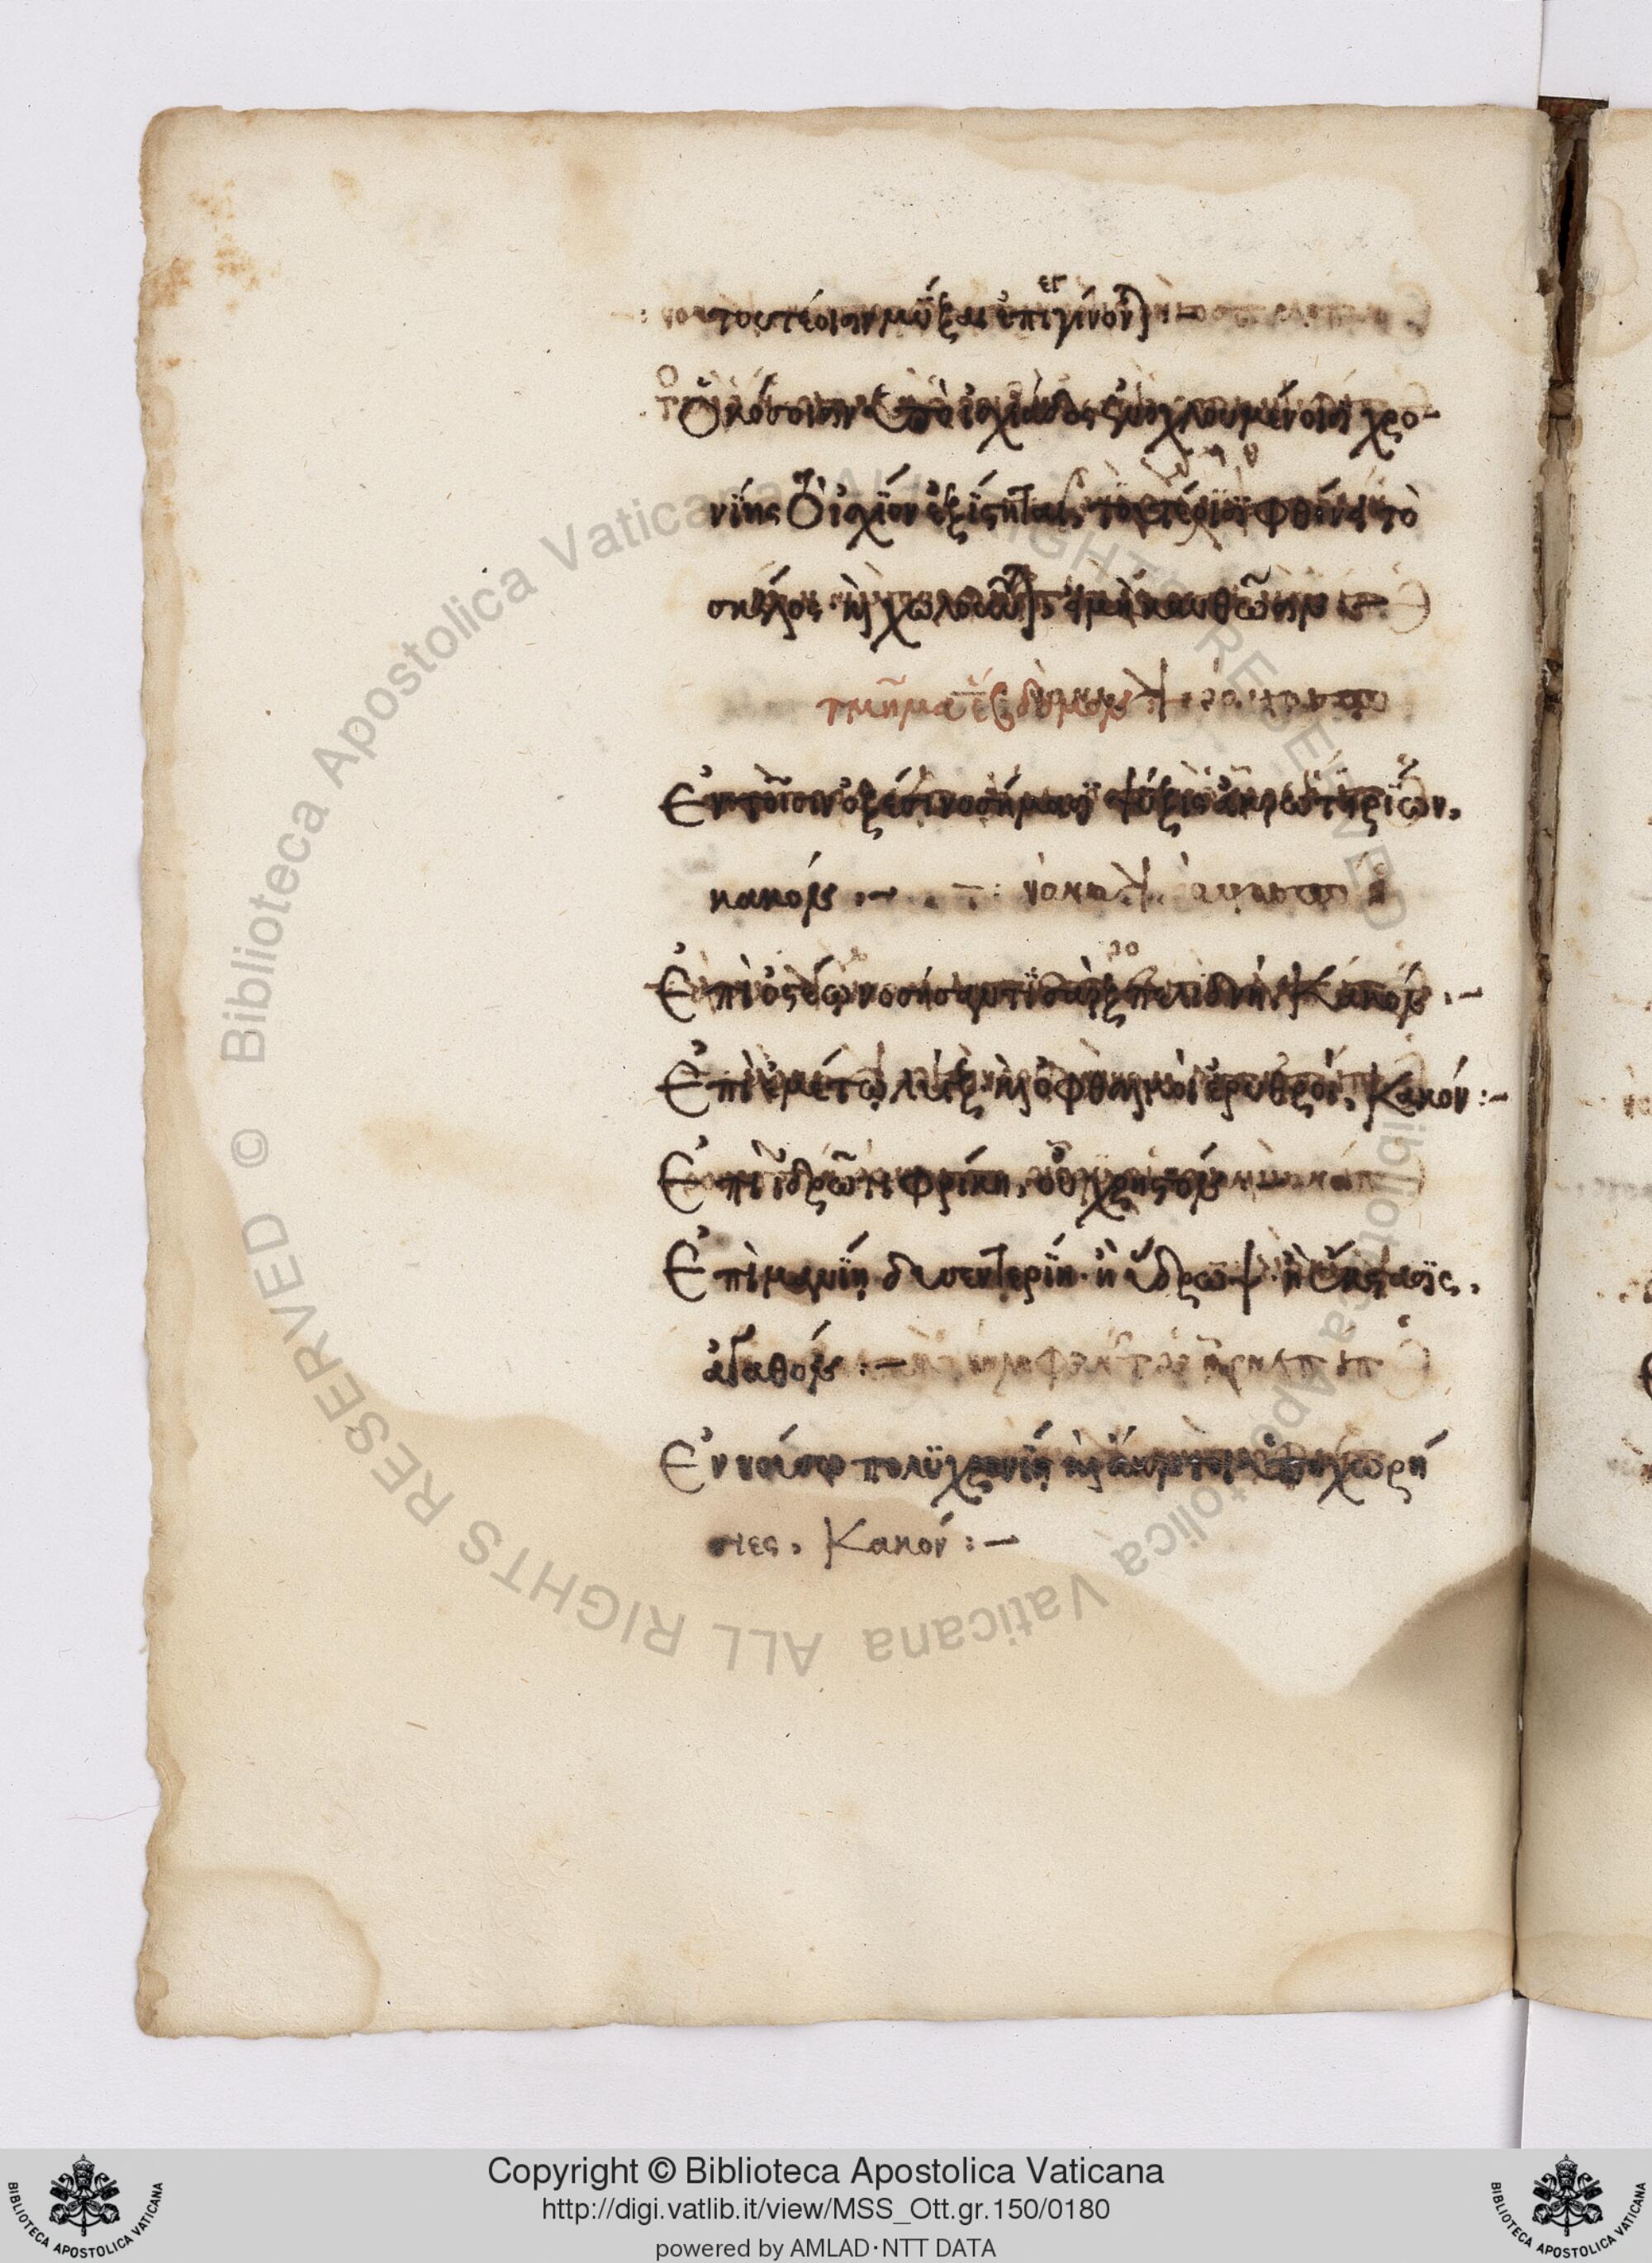 τουτέοισιν μύξαι ἐπιγίνον :~
Ὁκόσοισιν ὑπὸ ἰσχιάδος ἐνοχλουμένοισι χρο-
νίης τὸ ἰσχίον ἐξίσταται, τουτέοισι φθίνει τὸ
σκέλος καὶ χωλοῦνται, ἢν μὴ καυθῶσιν :~
τμῆμα ἕβδομον
Ἐν τοῖσιν ὀξέσι νοσήμασι ψύξις ἀκρωτηρίων,
κακόν :~
Ἐπὶ ὀστέῳ νοσήσαντι σὰρξ πελιδνή, κακόν :~
Ἐπὶ ἐμέτῳ λύξ καὶ ὀφθαλμοὶ ἐρυθροί, κακόν :~
Ἐπὶ ἱδρῶτι φρίκη, οὐ χρηστόν
Ἐπὶ μανίῃ δυσεντερίη ἢ ὕδρωψ ἢ ἔκστασις,
ἀγαθόν :~
Ἐν νούσῳ πολυχρονίῃ καὶ ἄκρητοι ὑποχωρή
σιες, κακόν :~
Copyright © Biblioteca Apostolica Vaticana
http://digi.vatlib.it/view/MSS_Ott.gr.150/0180
powered by AMLAD·NTT DATA
BIBLIOTECA APOSTOLICA VATICANA
BIBLIOTECA APOSTOLICA VATICANA
Biblioteca Apostolica Vaticana ALL RIGHTS RESERVED ©
Biblioteca Apostolica Vaticana ALL RIGHTS RESERVED ©